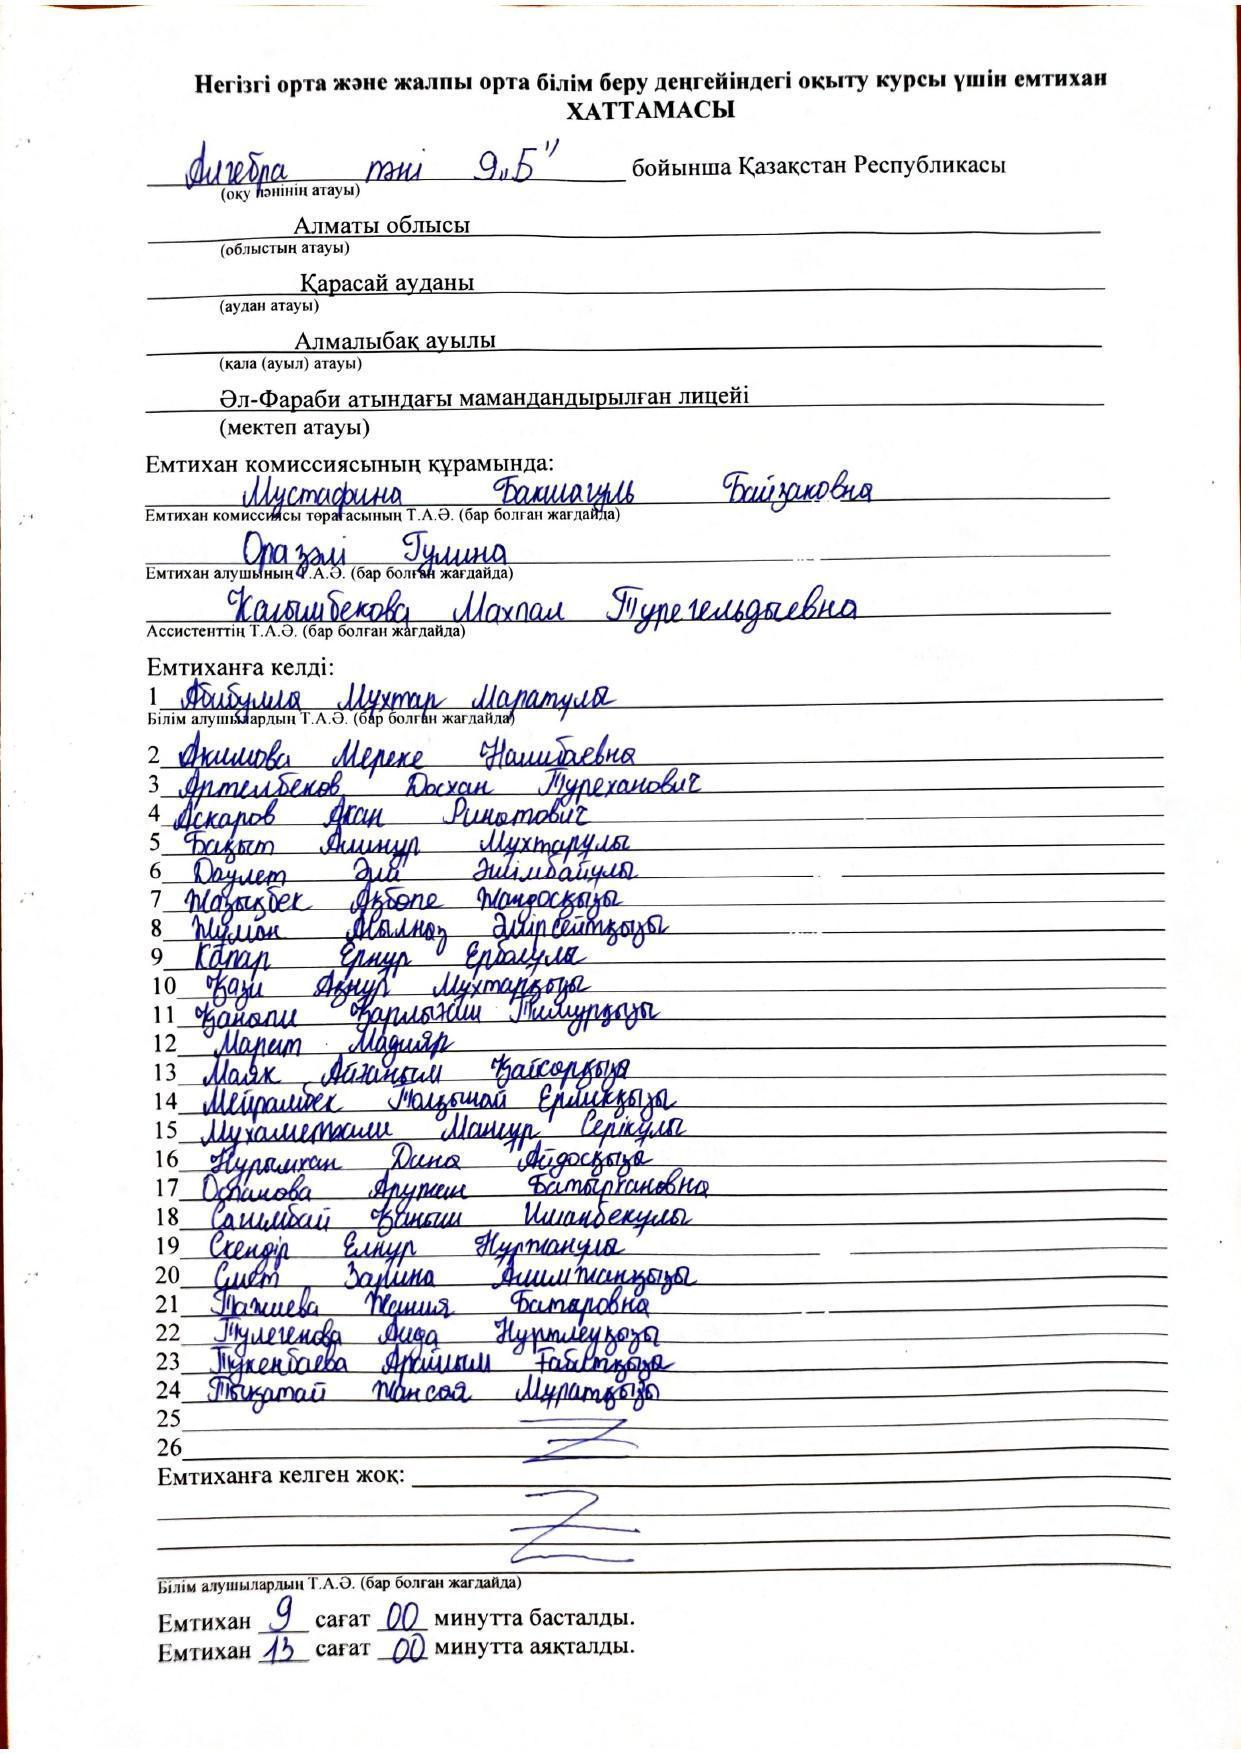 Негізгі орта және жалпы орта білім беру деңгейіндегі оқыту курсы үшін емтихан
ХАТТАМАСЫ
Алгебра пәні 9„Б" бойынша Қазақстан Республикасы
(оқу пәнінің атауы)
Алматы облысы
(облыстың атауы)
Қарасай ауданы
(аудан атауы)
Алмалыбақ ауылы
(қала (ауыл) атауы)
Әл-Фараби атындағы мамандандырылған лицейі
(мектеп атауы)
Емтихан комиссиясының құрамында:
Мустафина Бакшагуль Байзаковна
Емтихан комиссиясы төрағасының Т.А.Ә. (бар болған жағдайда)
Оразәлі Гулина
Емтихан алушының Т.А.Ә. (бар болған жағдайда)
Калымбекова Махпал Турегельдыевна
Ассистенттің Т.А.Ә. (бар болған жағдайда)
Емтиханға келді:
1 Абибулла Мұхтар Маратұлы
Білім алушылардың Т.А.Ә. (бар болған жағдайда)
2 Акимова Мереке Налибаевна
3 Артелбеков Досхан Туреханович
4 Аскаров Акан Ринатович
5 Бақыт Алинұр Мұхтарұлы
6 Дәулет Әли Әшімбайұлы
7 Жазықбек Ақбөпе Жандосқызы
8 Жұман Ақылназ Әмірсейтқызы
9 Капар Ернұр Ерболұлы
10 Қази Ақнұр Мұхтарқызы
11 Қанапи Қарлығаш Тимурқызы
12 Марат Мадияр
13 Маяк Айжаным Қайсарқызы
14 Мейрамбек Толқынай Ерликқызы
15 Мухаметкали Мансұр Серікұлы
16 Нұрымхан Дана Айдосқызы
17 Оспанова Аружан Батырхановна
18 Сагимбай Қаныш Иманбекұлы
19 Скендір Елнұр Нұржанұлы
20 Смет Зарина Алимжанқызы
21 Тажиева Жания Батыровна
22 Тулегенова Аида Нұртлеуқызы
23 Тукенбаева Арайлым Ғабитқызы
24 Тықатай Жансая Мұратқызы
25
26
Емтиханға келген жоқ:
Білім алушылардың Т.А.Ә. (бар болған жағдайда)
Емтихан 9 сағат 00 минутта басталды.
Емтихан 13 сағат 00 минутта аяқталды.